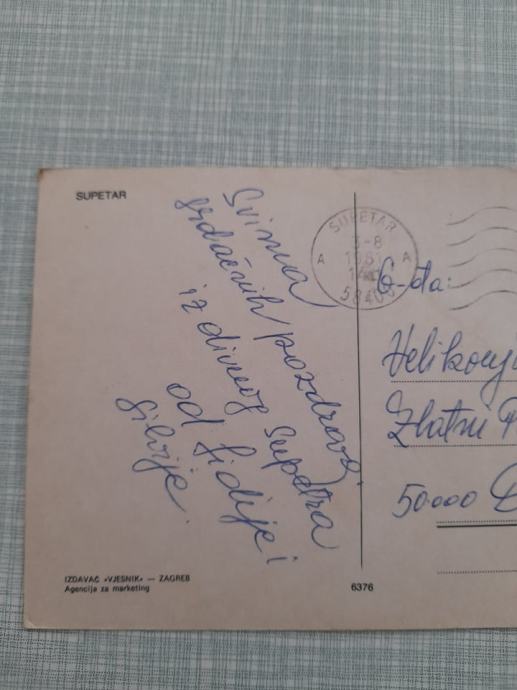 SUPETAR
Svima
srdačnih pozdrava
iz divnog Supetra
od Lidije i
Silvije.
SUPETAR
3-8
A A
58400
G-đa:
Zlatni
50000
IZDAVAČ »VJESNIK« — ZAGREB
Agencija za marketing
6376